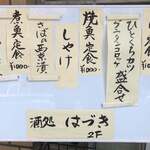 ひとくちカツ
クリームコロッケ
盛合せ
焼魚定食
¥1000-
しゃけ
さばの西京漬
煮魚定食
¥1000-
酒処 はづき
2F